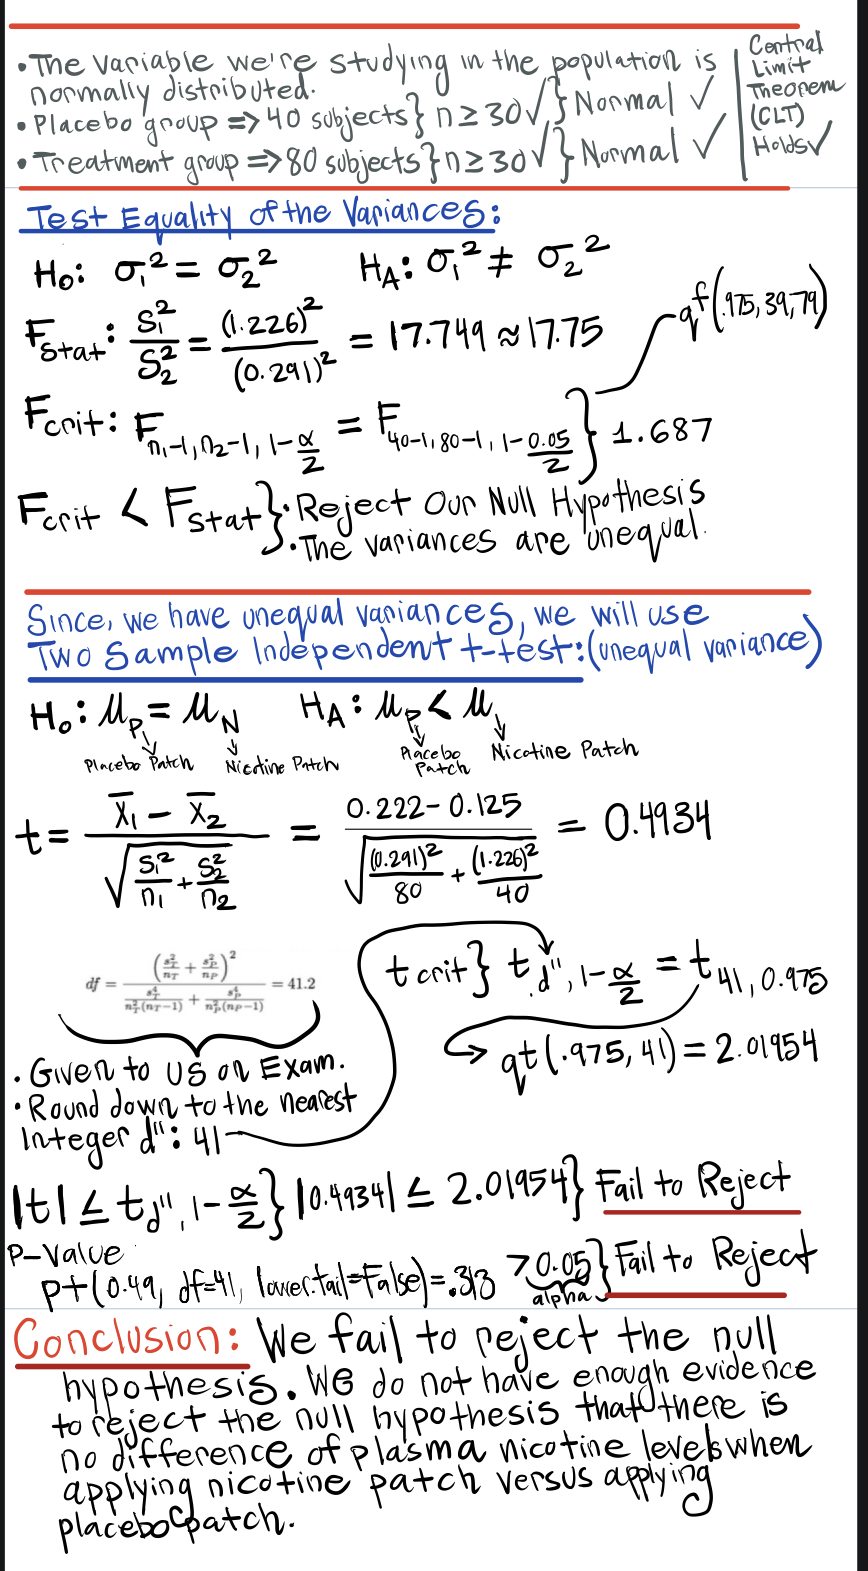 • The variable we're studying in the population is
normally distributed.
• Placebo group => 40 subjects} n ≥ 30 √ } Normal ✓
• Treatment group => 80 subjects} n ≥ 30 √ } Normal ✓
Central
Limit
Theorem
(CLT)
Holds ✓
Test Equality of the Variances:
H₀: σ₁² = σ₂² H_A: σ₁² ≠ σ₂²
F_stat: S₁²/S₂² = (1.226)²/(0.291)² = 17.749 ≈ 17.75
qf(.975, 39, 79)
F_crit: F_{n₁-1, n₂-1, 1-α/2} = F_{40-1, 80-1, 1-0.05/2} } 1.687
F_crit < F_stat } • Reject Our Null Hypothesis
• The variances are unequal.
Since, we have unequal variances, we will use
Two Sample Independent t-test: (unequal variance)
H₀: μ_P = μ_N H_A: μ_P < μ
Placebo Patch Nicotine Patch Placebo Patch Nicotine Patch
t = (x̄₁ - x̄₂)/√(S₁²/n₁ + S₂²/n₂) = (0.222 - 0.125)/√((0.291)²/80 + (1.226)²/40) = 0.4934
df = (s_T²/n_T + s_P²/n_P)² / (s_T⁴/(n_T²(n_T-1)) + s_P⁴/(n_P²(n_P-1))) = 41.2
t crit} t_{d'', 1-α/2} = t_{41, 0.975}
qt(.975, 41) = 2.01954
• Given to us on Exam.
• Round down to the nearest
Integer d'': 41
|t| ≤ t_{d'', 1-α/2} } |0.4934| ≤ 2.01954} Fail to Reject
P-Value
pt(0.49, df=41, lower.tail=False) = .313 > 0.05} Fail to Reject
alpha
Conclusion: We fail to reject the null
hypothesis. We do not have enough evidence
to reject the null hypothesis that there is
no difference of plasma nicotine levels when
applying nicotine patch versus applying
placebo patch.